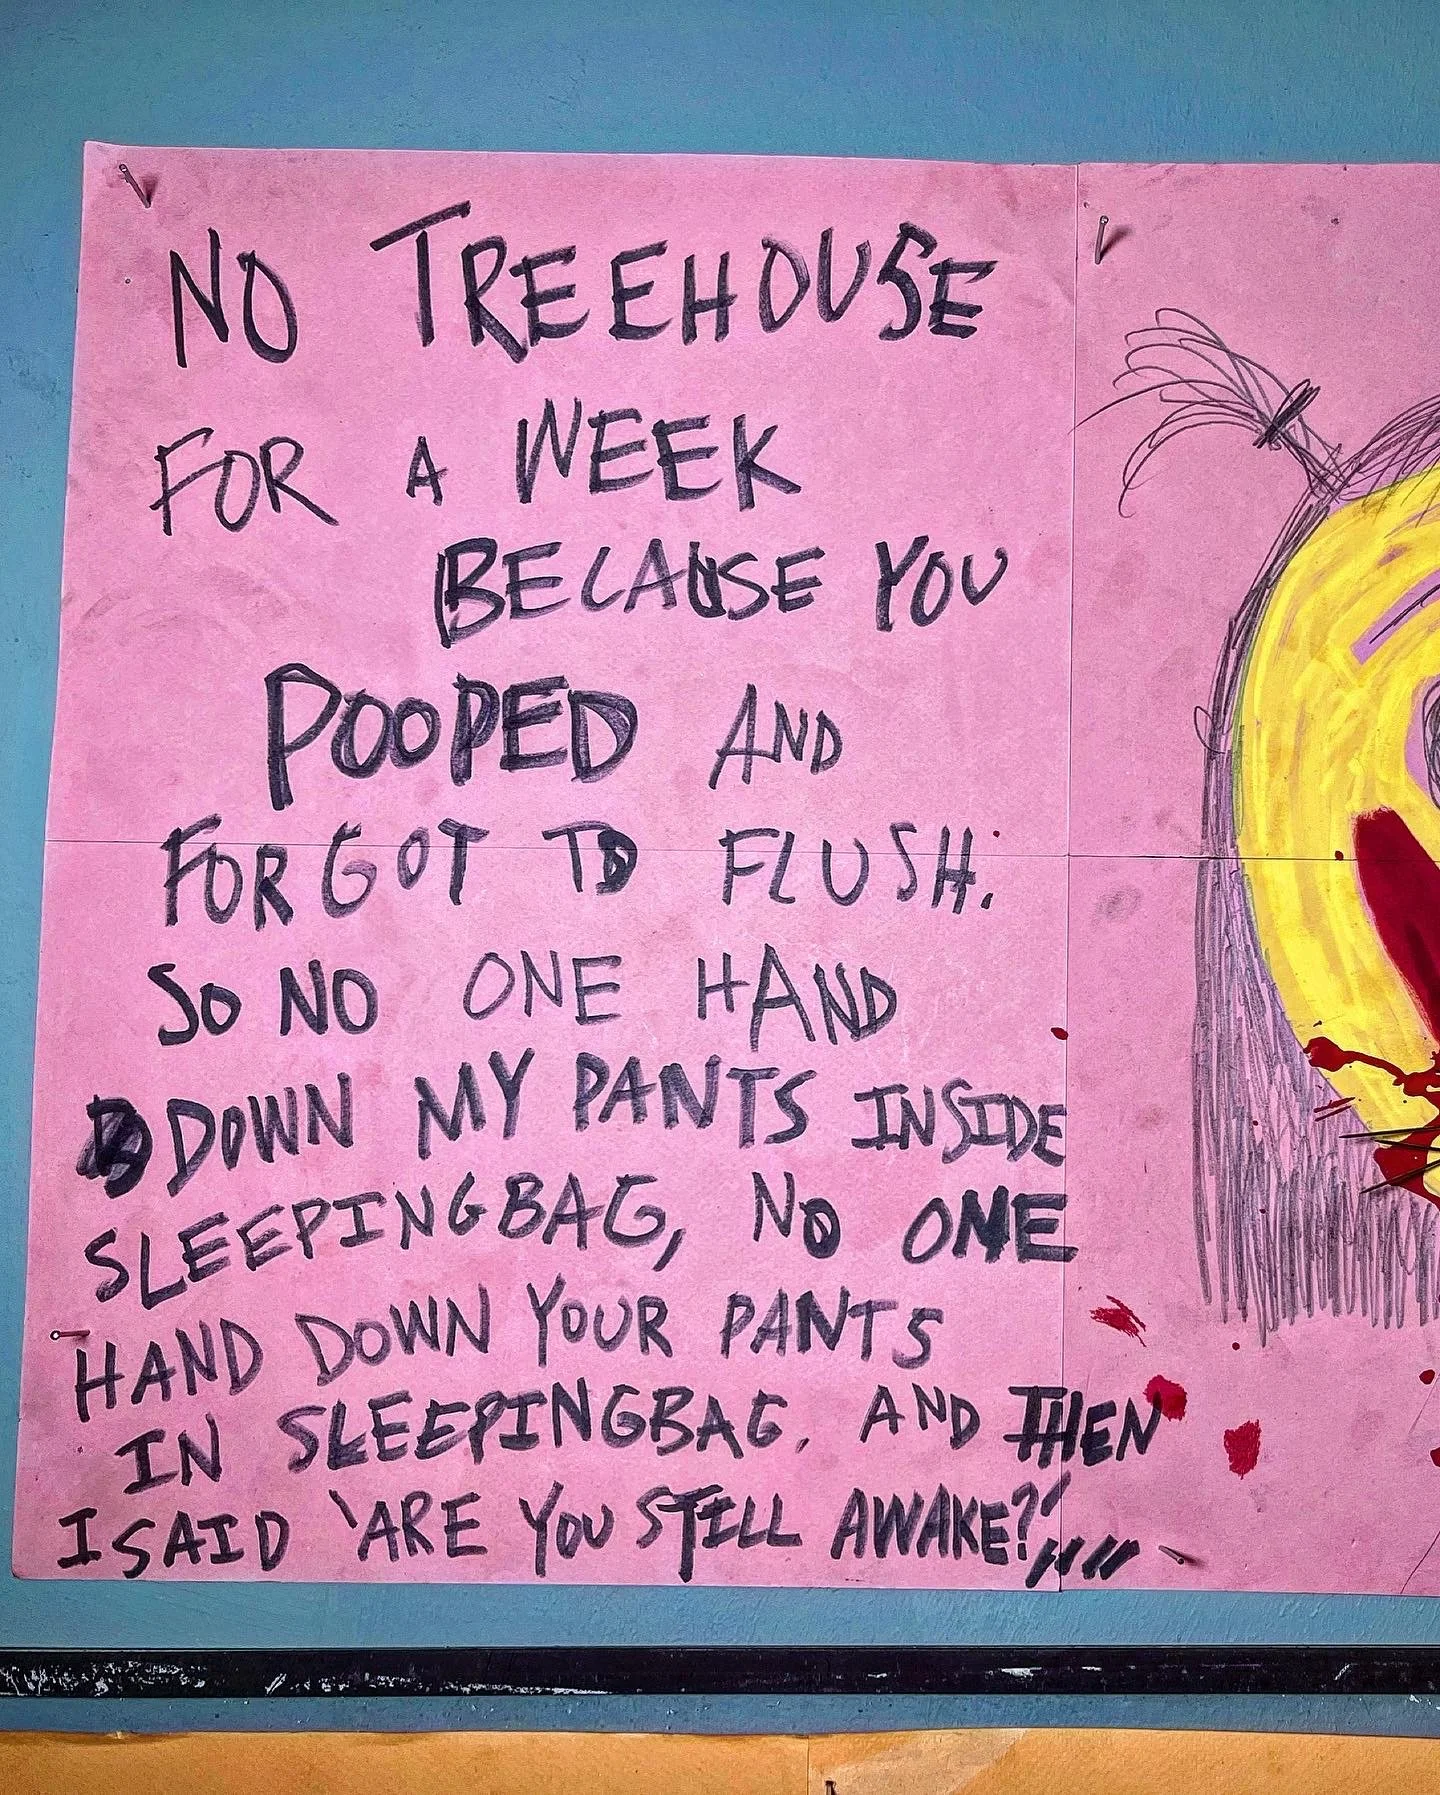 NO TREEHOUSE
FOR A WEEK
BECAUSE YOU
POOPED AND
FORGOT TO FLUSH.
SO NO ONE HAND
DOWN MY PANTS INSIDE
SLEEPINGBAG, NO ONE
HAND DOWN YOUR PANTS
IN SLEEPINGBAG. AND THEN
I SAID 'ARE YOU STILL AWAKE?'""